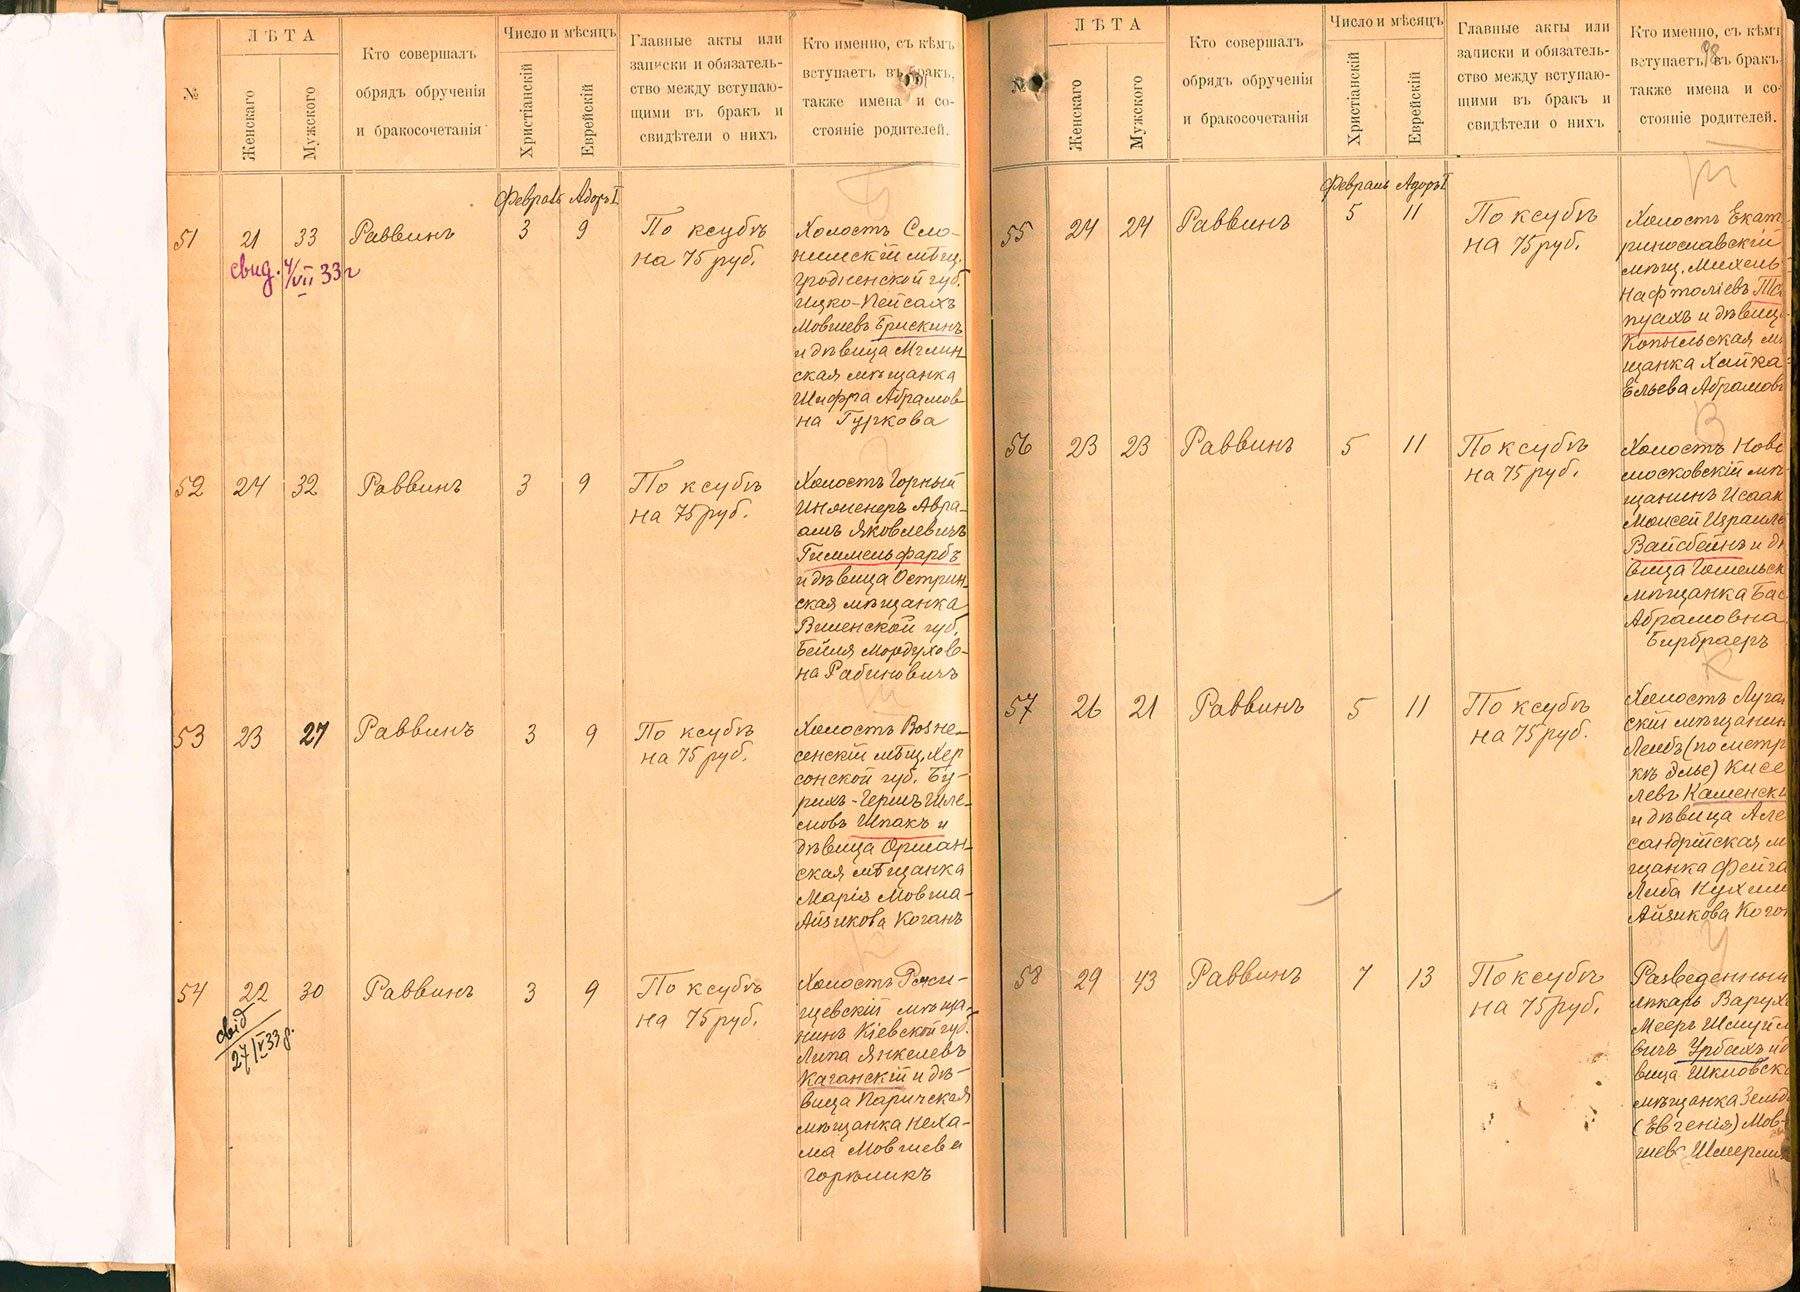 №
ЛѢТА
Женскаго
Мужского
Кто совершалъ
обрядъ обрученія
и бракосочетанія
Число и мѣсяцъ
Христіанскій
Еврейскій
Главные акты или
записки и обязатель-
ство между вступаю-
щими въ бракъ и
свидѣтели о нихъ
Кто именно, съ кѣмъ
вступаетъ въ бракъ,
также имена и со-
стояніе родителей.
Февраль Адоръ I
51 21 33 Раввинъ 3 9
свид. 4/VII 33 г
По ксубѣ
на 75 руб.
Холостъ Сло-
нимскій мѣщ.
Гродненской губ.
Ицко-Пейсахъ
Мовшевъ Брискинъ
и дѣвица Мглин-
ская мѣщанка
Шифра Абрамов-
на Гуркова
52 24 32 Раввинъ 3 9
По ксубѣ
на 75 руб.
Холостъ Горный
Инженеръ Авра-
амъ Яковлевичъ
Гиммельфарбъ
и дѣвица Острин-
ская мѣщанка
Виленской губ.
Бейля Мордухов-
на Рабиновичъ
53 23 27 Раввинъ 3 9
По ксубѣ
на 75 руб.
Холостъ Возне-
сенскій мѣщ. Хер
сонской губ. Бу-
рихъ-Гершъ Шле-
мовъ Шпакъ и
дѣвица Оршан-
ская мѣщанка
Марія Мовша-
Айзикова Коганъ
54 22 30 Раввинъ 3 9
свід
27/V 33 р.
По ксубѣ
на 75 руб.
Холостъ
щевскій мѣща-
нинъ Кіевской губ.
Липа Янкелевъ
Каганскій и дѣ-
вица Паричская
мѣщанка Неха-
ма Мовшева
Горюликъ
№
ЛѢТА
Женскаго
Мужского
Кто совершалъ
обрядъ обрученія
и бракосочетанія
Число и мѣсяцъ
Христіанскій
Еврейскій
Главные акты или
записки и обязатель-
ство между вступаю-
щими въ бракъ и
свидѣтели о нихъ
Кто именно, съ кѣмъ
вступаетъ въ бракъ
также имена и со-
стояніе родителей.
98
Февраль Адоръ I
55 24 24 Раввинъ 5 11
По ксубѣ
на 75 руб.
Холостъ Екат
ринославскій
мѣщ. Михель
Нафтоліевъ
пуахъ и дѣвица
Копыльская мѣ
щанка Хайка
Ельева Абрамов
56 23 23 Раввинъ 5 11
По ксубѣ
на 75 руб.
Холостъ Ново
московскій мѣ-
щанинъ Исаак
Моисей Израиль
Вайсбейнъ и дѣ
вица Гомельск
мѣщанка Бас
Абрамовна
Бирбраеръ
57 26 21 Раввинъ 5 11
По ксубѣ
на 75 руб.
Холостъ Луган
скій мѣщанин
Лейбъ (по метри
кѣ Элье) Кисе
левъ Каменскі
и дѣвица Але
сандрійская м
щанка Фейга
Либа Нухим
Айзикова Коган
58 29 43 Раввинъ 7 13
По ксубѣ
на 75 руб.
Разведенный
лѣкарь Варух
Мееръ Шмуйл
вичъ Урбахъ и д
вица Шкловска
мѣщанка Зельд
(Евгенія) Мов-
шев Шмерли